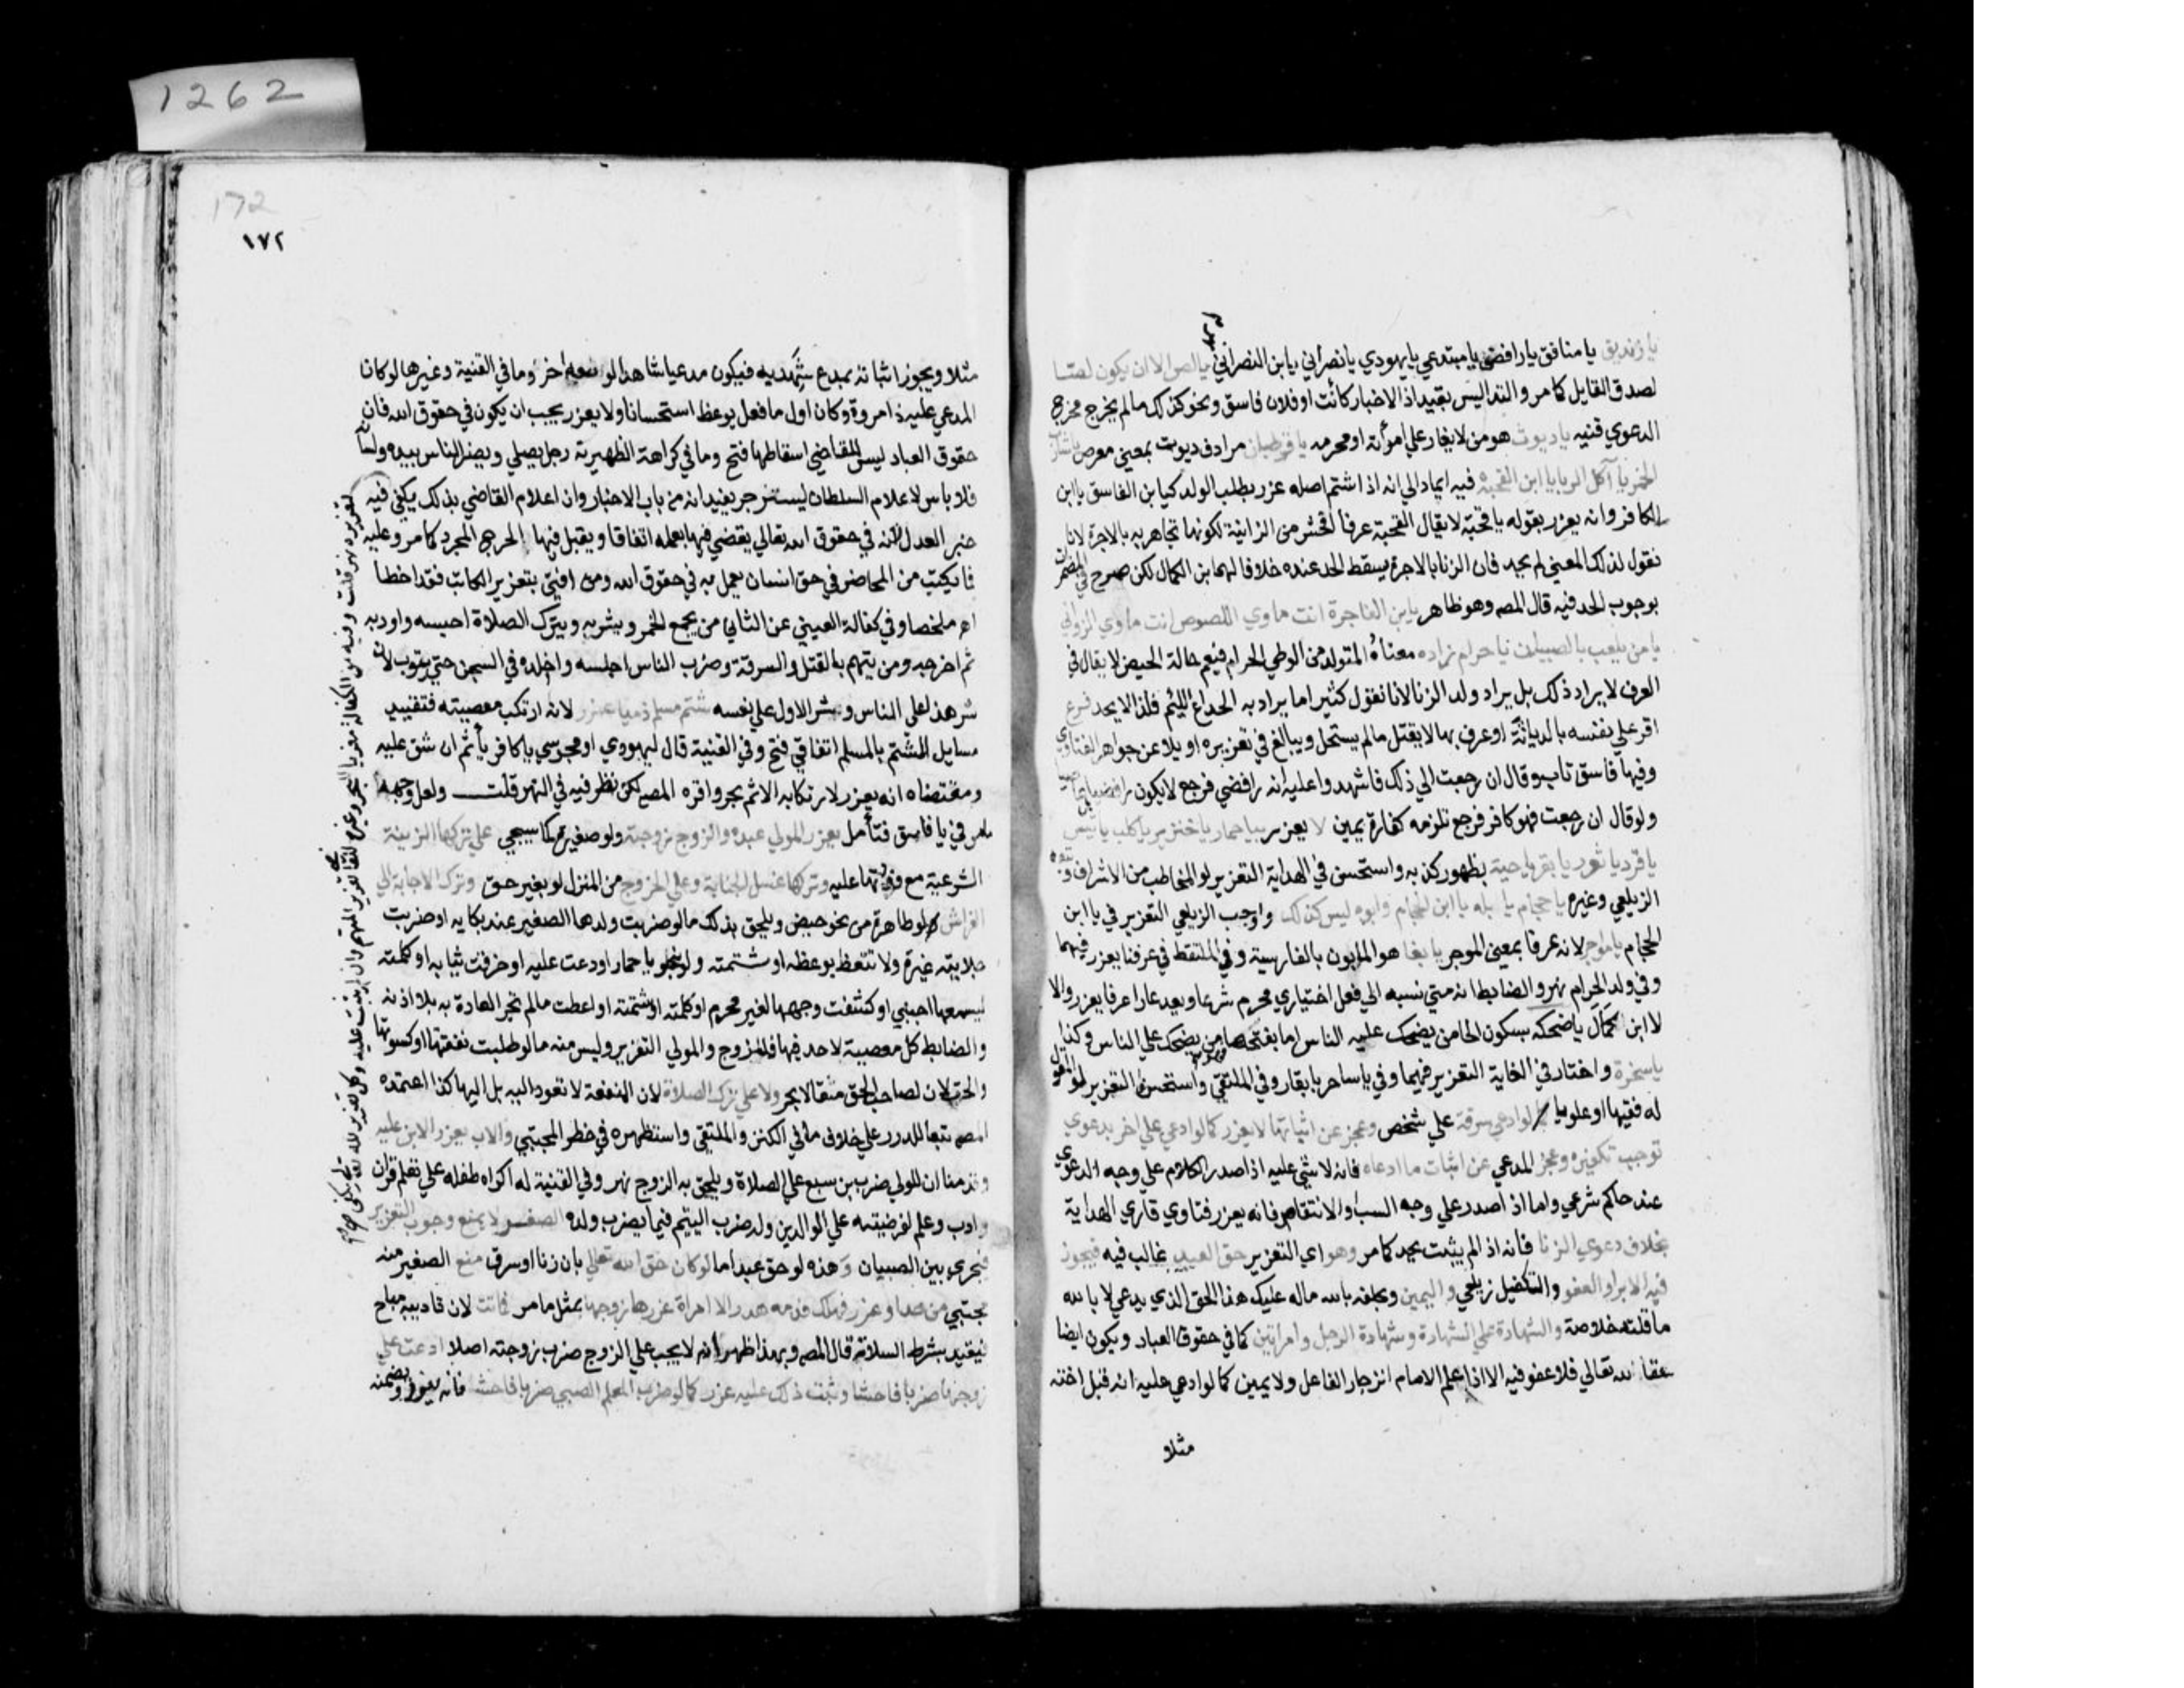 يا زنديق يا منافق يا رافضي يا مبتدعي يا يهودي يا نصراني يا ابن النصراني يا لص الا ان يكون لصا
لصدق القايل كما مر والندا ليس بقيد اذ الاخبار كانت او فلان فاسق ونحو كذلك ما لم يخرج مخرج
الدعوي قنيه يا ديوث هو من لا يغار علي امرأته او محرمه يا قرطبان مرادف ديوث بمعني معرص يا شارب
الخمر يا آكل الربا يا ابن القحبة فيه ايماء الي انه اذا شتم اصله عزر بطلب الولد كيا ابن الفاسق يا ابن
الكافر وانه يعزر بقوله يا قحبة لا يقال القحبة عرفا افحش من الزانية لكونها تجاهر به بالاجرة لانا
نقول لذلك المعني لم يحد فان الزنا بالاجرة يسقط الحد عنده خلافا لهما ابن الكمال لكن صرح في المضمرات
بوجوب الحد فيه قال المصه وهو ظاهر يا ابن الفاجرة انت ماوي اللصوص انت ماوي الزواني
يا من يلعب بالصبيان يا حرام زاده معناه المتولد من الوطي الحرام فيعم حالة الحيض لا يقال في
العرف لا يراد ذلك بل يراد ولد الزنا لانا نقول كثيرا ما يراد به الخداع اللئيم فلذا لا يحد فرع
اقر علي نفسه بالدياثة او عرف بها لا يقتل ما لم يستحل ويبالغ في تعزيره او يلاعن جواهر الفتاوي
وفيها فاسق تاب وقال ان رجعت الي ذلك فاشهدوا عليه انه رافضي فرجع لا يكون رافضيا بل عاصيا
ولو قال ان رجعت فهو كافر فرجع تلزمه كفارة يمين لا يعزر بيا حمار يا خنزير يا كلب يا تيس
يا قرد يا ثور يا بقر يا حية بظهور كذبه واستحسن في الهداية التعزير لو المخاطب من الاشراف وتبعه
الزيلعي وغيره يا حجام يا بله يا ابن الحجام وابوه ليس كذلك واوجب الزيلعي التعزير في يا ابن
الحجام يا مؤاجر لانه عرفا بمعني الموجر يا بغا هو المابون بالفارسية وفي الملتقط في عرفنا يعزر فيهما
وفي ولد الحرام نهر والضابط انه متي نسبه الي فعل اختياري محرم شرعا ويعد عارا عرفا يعزر والا
لا ابن كمال يا ضحكه بسكون الحا من يضحك عليه الناس اما بفتحها من يضحك علي الناس وكذا
يا سخرة واختار في الغاية التعزير فيهما وفي يا ساحر يا بقار وفي الملتقي واستحسنوا التعزير لو المقول
له فقيها او علويا لو ادعي سرقة علي شخص وعجز عن اثباتها لا يعزر كما لو ادعي علي اخر بدعوي
توجب تكفيره وعجز المدعي عن اثبات ما ادعاه فانه لا شيء عليه اذا صدر الكلام علي وجه الدعوي
عند حاكم شرعي واما اذا صدر علي وجه السب او الانتقاص فانه يعزر فتاوي قاري الهداية
بخلاف دعوي الزنا فانه اذا لم يثبت يحد كما مر وهو اي التعزير حق العبد غالب فيه فيجوز
فيه الابرا والعفو والتكفيل زيلعي واليمين ويحلفه بالله ماله عليك هذا الحق الذي يدعي لا بالله
ما قلته خلاصة والشهادة علي الشهادة وشهادة الرجل وامراتين كما في حقوق العباد ويكون ايضا
حقا لله تعالي فلا عفو فيه الا اذا علم الامام انزجار الفاعل ولا يمين كما لو ادعي عليه انه قبل اخته
مثلا
172
١٧٢
مثلا ويجوز اثباته بمدع شهد به فيكون مدعيا شاهدا لو معه اخر وما في القنية وغيرها لو كان
المدعي عليه ذا مروة وكان اول ما فعل يوعظ استحسانا ولا يعزر يجب ان يكون في حقوق الله فان
حقوق العباد ليس للقاضي اسقاطها فتح وما في كراهة الظهيرية رجل يصلي ويضر الناس بيده ولسانه
فلا باس لاعلام السلطان لينزجر يفيد انه من باب الاخبار وان اعلام القاضي بذلك يكفي فيه
خبر العدل لانه في حقوق الله تعالي يقضي فيها بعلمه اتفاقا ويقبل فيها الجرح المجرد كما مر وعليه
فا يكتب من المحاضر في حق انسان يعمل به في حقوق الله ومن افتي بتعزير الكاتب فقد اخطأ
اهـ ملخصا وفي كفالة العيني عن الثاني من يجمع الخمر ويشربه ويترك الصلاة احبسه واودبه
ثم اخرجه ومن يتهم بالقتل والسرقة وضرب الناس احبسه واخلده في السجن حتي يتوب لان
شر هذا علي الناس وشر الاول علي نفسه شتم مسلم ذميا عزر لانه ارتكب معصيته فتقييد
مسايل الشتم بالمسلم اتفاقي فتح وفي القنية قال ليهودي او مجوسي يا كافر يأثم ان شق عليه
ومقتضاه انه يعزر لارتكابه الاثم بحر واقره المصه لكن نظر فيه في النهر قلت ولعل وجهه
مامر في يا فاسق فتأمل يعزر المولي عبده والزوج زوجته ولو صغيرة لما سيجي علي تركها الزينة
الشرعية مع قدرتها عليه وتركها غسل الجنابة وعلي الخروج من المنزل لو بغير حق وترك الاجابة الي
الفراش لو طاهرة من نحو حيض ويلحق بذلك مالو ضربت ولدها الصغير عند بكايه او ضربت
جلابيته غيرة ولا تتعظ بوعظه او شتمته ولو بنحو يا حمار او دعت عليه او خرقت ثيابه او كلمته
ليسمعها اجنبي او كشفت وجهها لغير محرم او كلمته او شتمته او اعطت مالم تجر العادة به بلا اذنه
والضابط كل معصية لا حد فيها فللزوج والمولي التعزير وليس منه مالو طلبت نفقتها او كسوتها
والحت لان لصاحب الحق مقالا بحر ولا علي ترك الصلاة لان المنفعة لا تعود اليه بل اليها كذا اعتمده
المصه تبعا للدرر علي خلاف ما في الكنز والملتقي واستظهره في حظر المجتبي والاب يعزر الابن عليه
وقدمنا ان للولي ضرب بن سبع علي الصلاة ويلحق به الزوج نهر وفي القنية له اكراه طفله علي تعلم قران
وادب وعلم لفرضيته علي الوالدين وله ضرب اليتيم فيما يضرب ولده الصغر لا يمنع وجوب التعزير
فيجري بين الصبيان وهذه لو حق عبد اما لو كان حق الله تعالي بان زنا او سرق منع الصغير منه
مجتبي من حد او عزر فهلك فدمه هدر الا امراة عزرها زوجها بمثل ما مر فماتت لان تاديبه مباح
فيتقيد بشرط السلامة قال المصه وبهذا ظهر انه لا يجب علي الزوج ضرب زوجته اصلا ادعت علي
زوجها ضربا فاحشا وثبت ذلك عليه عزر كما لو ضرب المعلم الصبي ضربا فاحشا فانه يعزره ويضمنه
لتعزيره نهر قلت وفيه من الكفالة معزيا للبحر وغيره للقاضي تعزير المتهم وان لم يثبت عليه وكل تعزير لله تعالي يكفي فيه